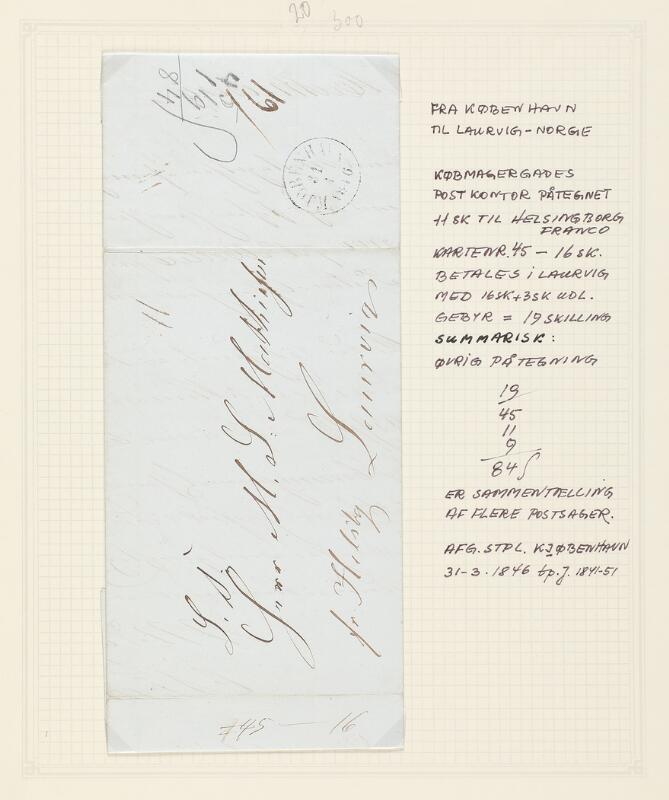 20
300
FRA KØBENHAVN
TIL LAURVIG-NORGE
KØBMAGERGADES
POSTKONTOR PÅTEGNET
11 SK TIL HELSINGBORG
FRANCO
KARTENR. 45 - 16 SK.
BETALES I LAURVIG
MED 16SK+3SK UDL.
GEBYR = 19 SKILLING
SUMMARISK:
ØVRIG PÅTEGNING
19
45
11
9
84
ER SAMMENTÆLLING
AF FLERE POSTSAGER.
AFG. STPL. KJØBENHAVN
31-3.1846 tp. J. 1841-51
19
45
11
9
84
KJØBENHAVN
31
1846
11
S. T.
Herr M. S. Matthiesen
Laurvig
pr Helsbg
#45 — 16